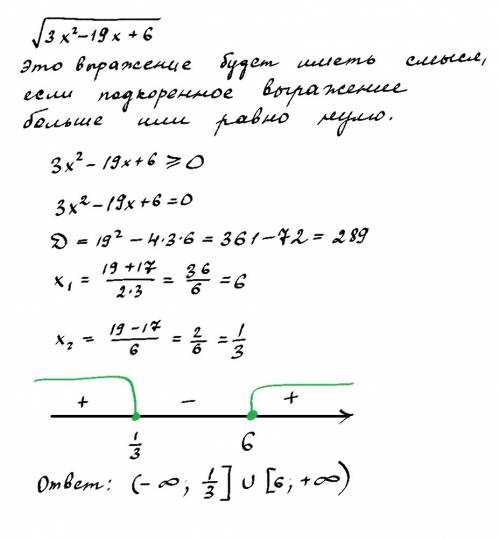 √3x²-19x+6
Это выражение будет иметь смысл,
если подкоренное выражение
больше или равно нулю.
3x²-19x+6⩾0
3x²-19x+6=0
D=19²-4·3·6=361-72=289
x₁ = (19+17)/(2·3) = 36/6 = 6
x₂ = (19-17)/6 = 2/6 = 1/3
+ - +
1/3 6
Ответ: (-∞; 1/3] ∪ [6; +∞)